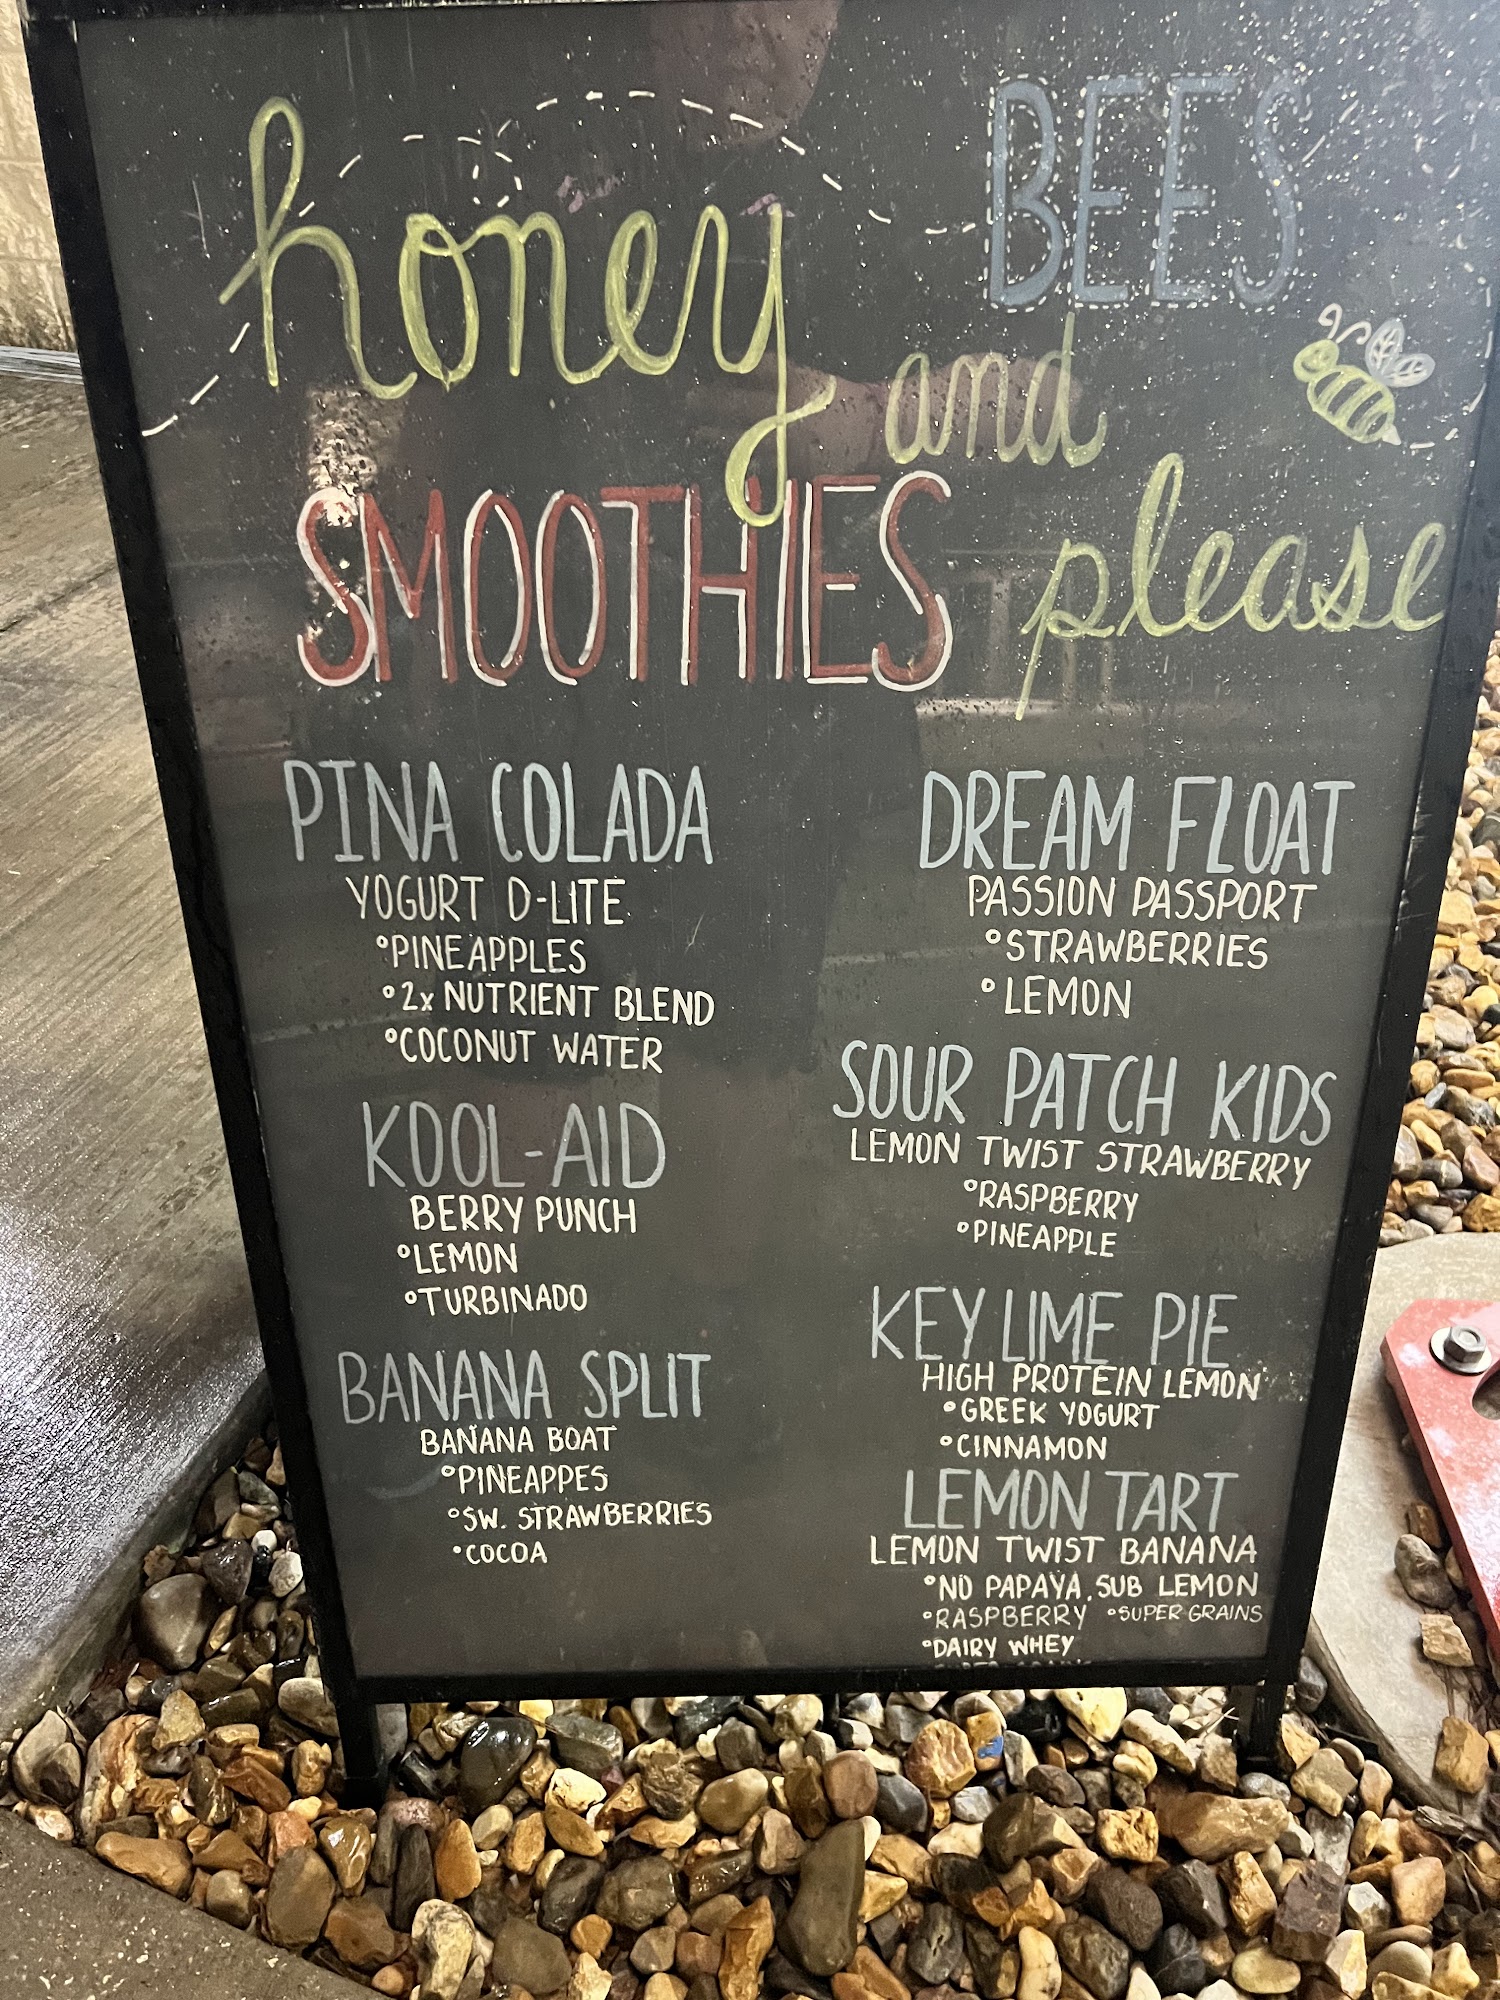 honey BEES
and
SMOOTHIES please
PINA COLADA
YOGURT D-LITE
°PINEAPPLES
°2x NUTRIENT BLEND
°COCONUT WATER
KOOL-AID
BERRY PUNCH
°LEMON
°TURBINADO
BANANA SPLIT
BANANA BOAT
°PINEAPPES
°SW. STRAWBERRIES
°COCOA
DREAM FLOAT
PASSION PASSPORT
°STRAWBERRIES
°LEMON
SOUR PATCH KIDS
LEMON TWIST STRAWBERRY
°RASPBERRY
°PINEAPPLE
KEY LIME PIE
HIGH PROTEIN LEMON
°GREEK YOGURT
°CINNAMON
LEMON TART
LEMON TWIST BANANA
°NO PAPAYA, SUB LEMON
°RASPBERRY °SUPER GRAINS
°DAIRY WHEY